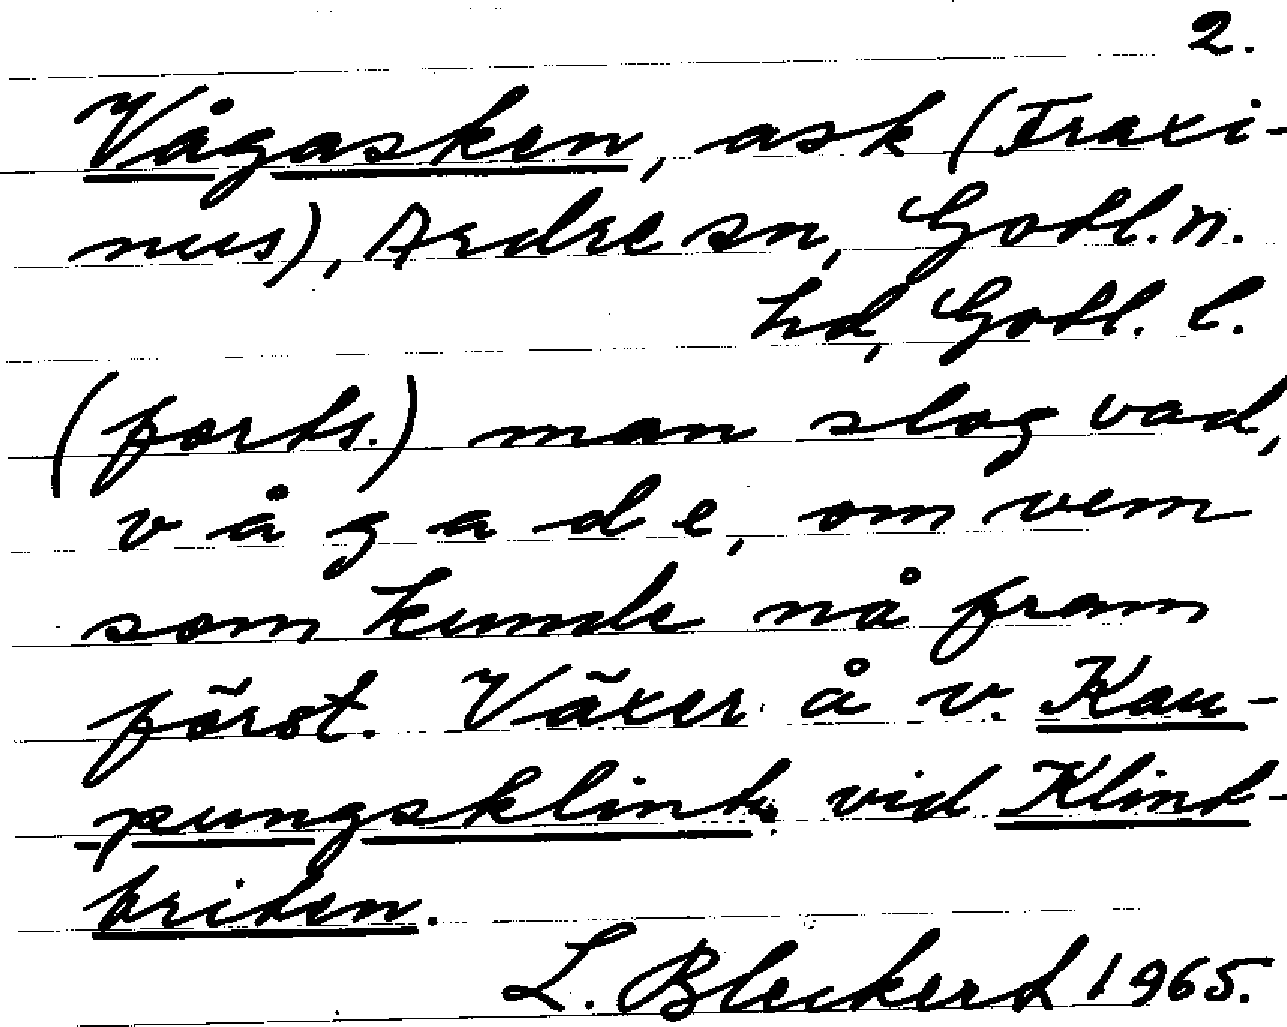 2.
Vågasken, ask (Fraxi-
nus), Ardre sn, Gotl. n.
hd, Gotl. l.
(forts.) man slog vad,
vågade, om vem
som kunde nå fram
först. Växer å v. Kau-
pungsklint, vid Klint-
briten.
L. Bleckert 1965.